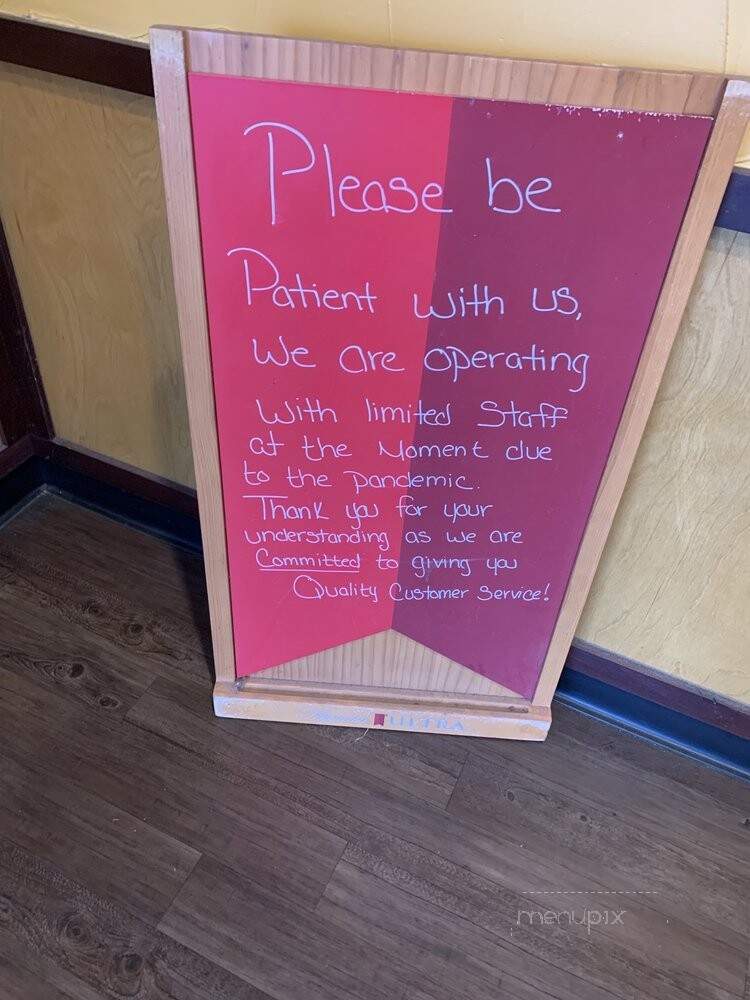 Please be
Patient with us,
We are operating
With limited Staff
at the Moment due
to the pandemic.
Thank you for your
understanding as we are
Committed to giving you
Quality Customer Service!
ULTRA
menupix